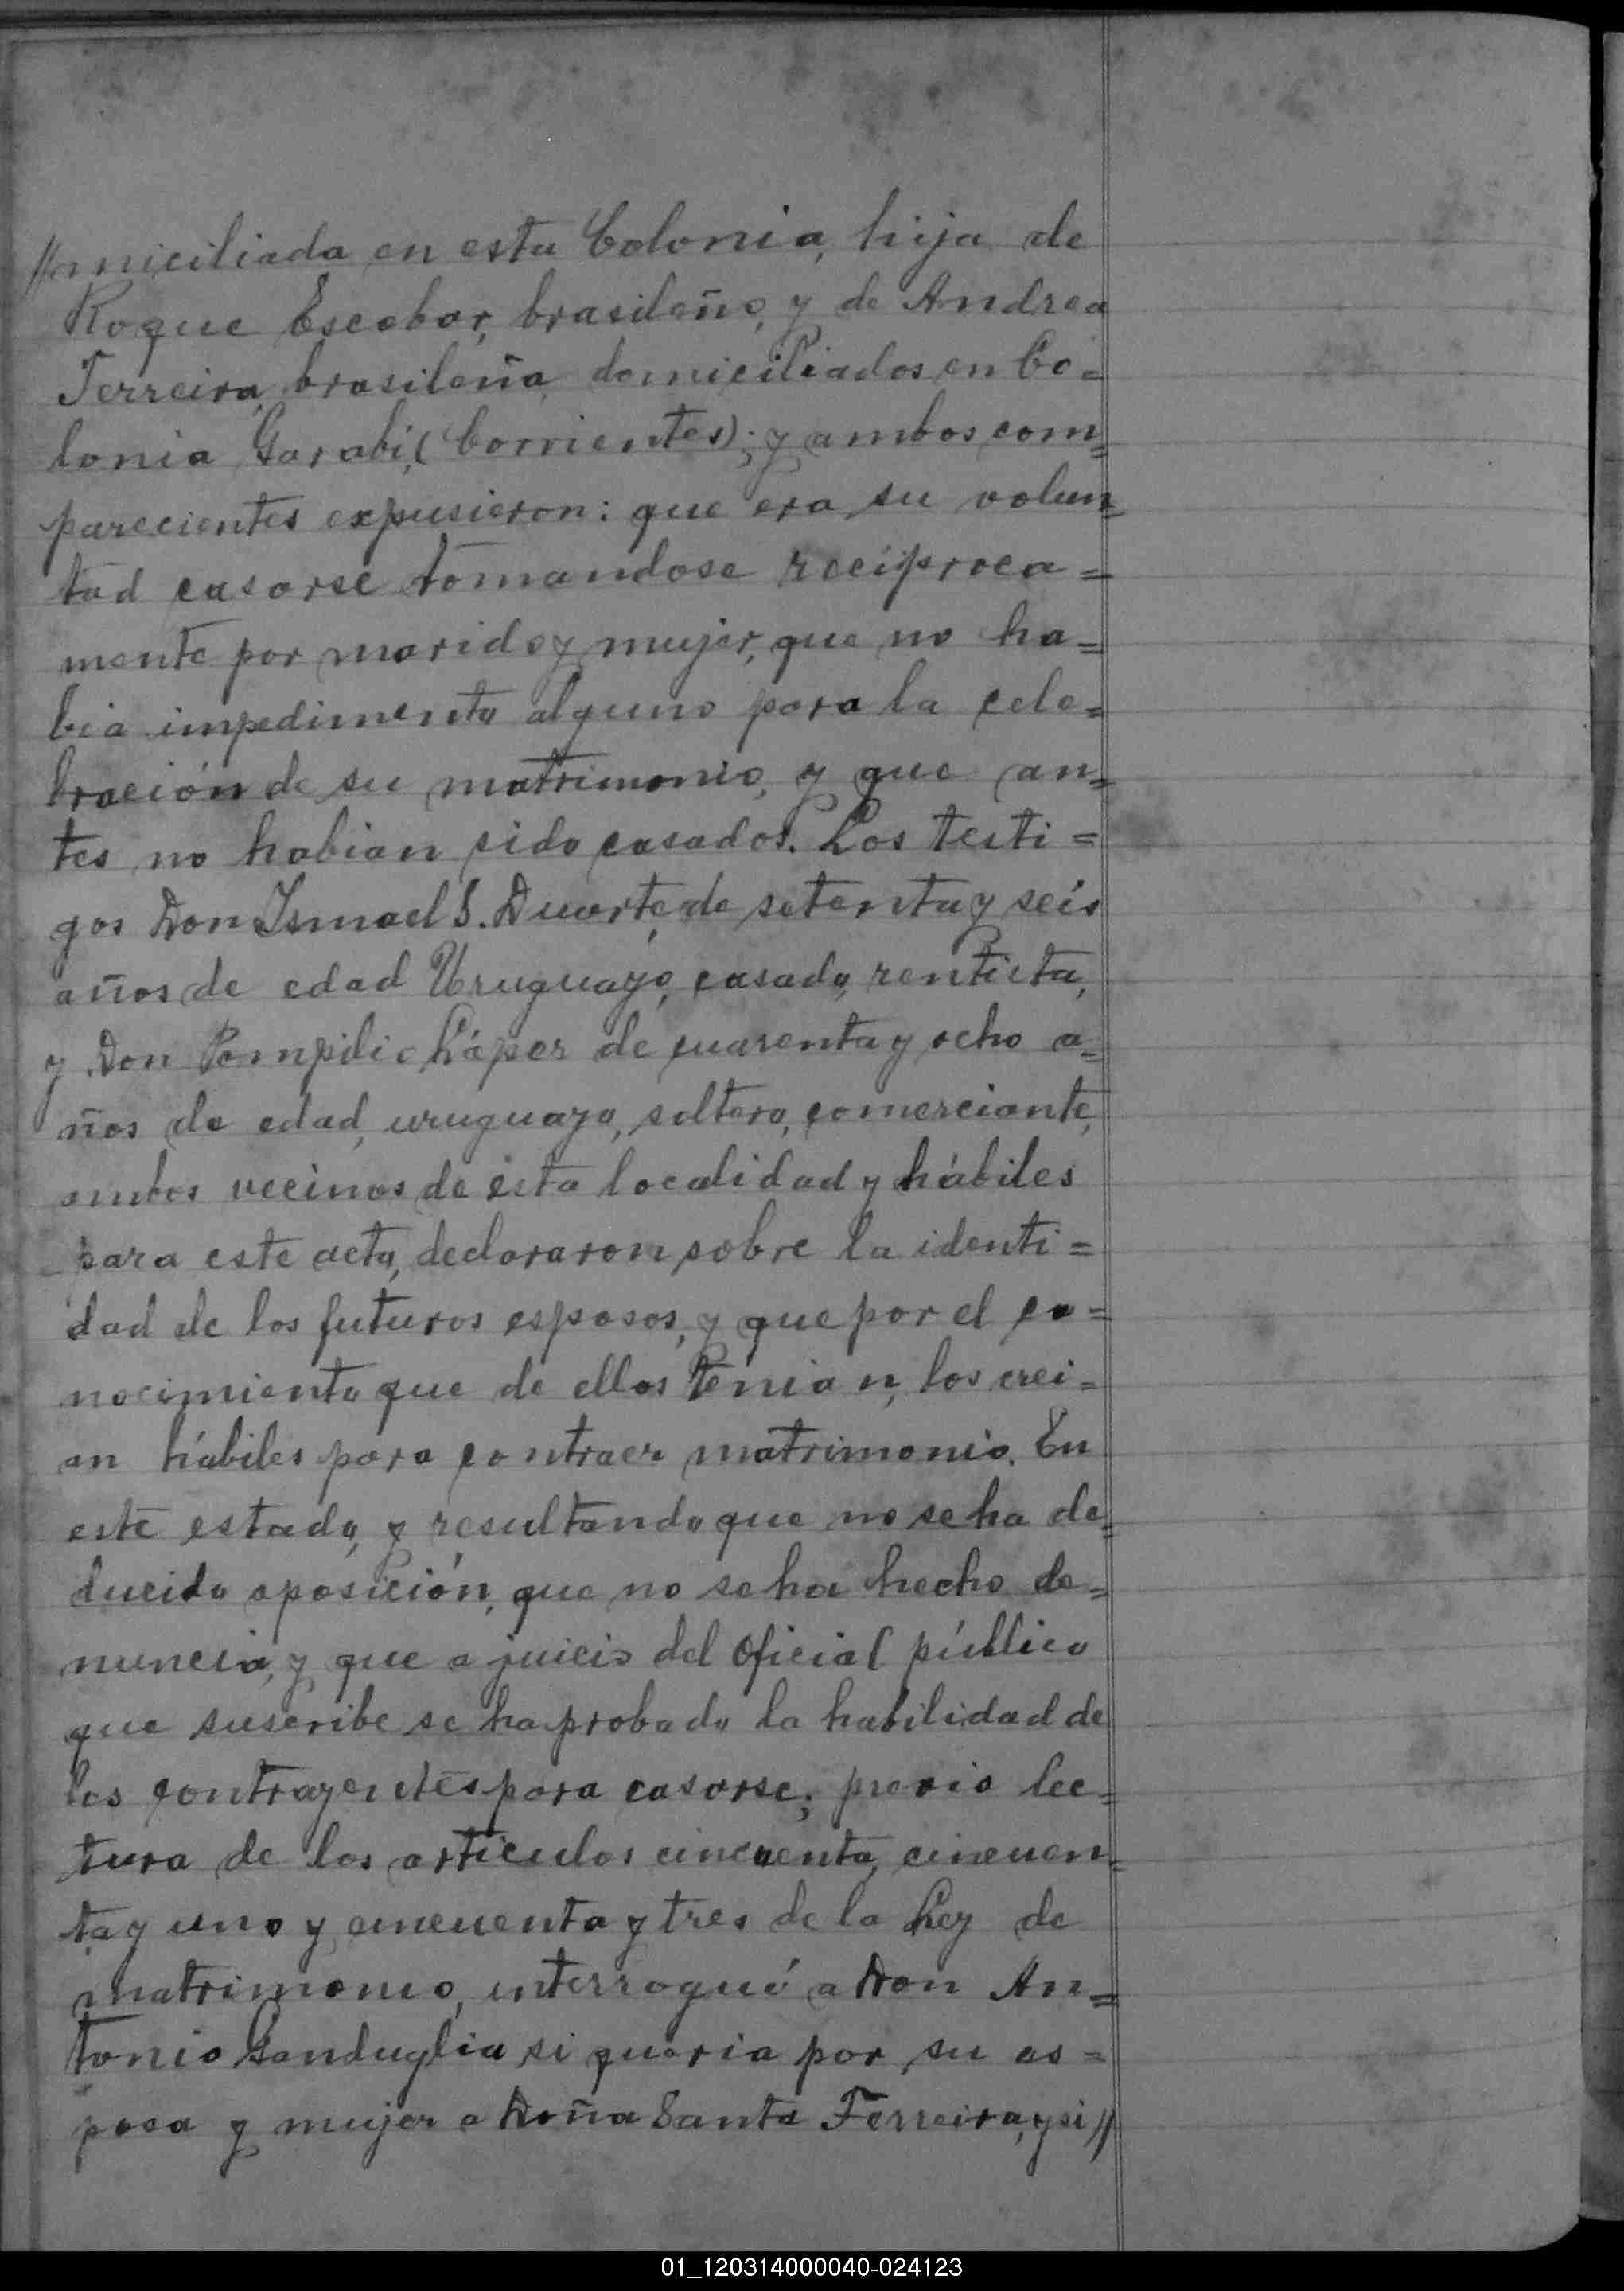 //miciliada en esta Colonia, hija de
Roque Escobar, brasileño, y de Andrea
Ferreira, brasileña, domiciliados en Co=
lonia Garabí, (Corrientes); y ambos com=
parecientes expusieron: que era su volun=
tad casarse tomandose recíproca=
mente por marido y mujer, que no ha=
bia impedimento alguno para la cele=
bración de su matrimonio, y que an=
tes no habian sido casados. Los testi=
gos Don Ismael S. Duarte, de setenta y seis
años de edad Uruguayo, casado, rentista,
y Don Pompilio López de cuarenta y ocho a=
ños de edad, uruguayo, soltero, comerciante,
ambos vecinos de ésta localidad y hábiles
para este acto, declararon sobre la identi=
dad de los futuros esposos, y que por el co=
nocimiento que de ellos tenian, los crei=
an hábiles para contraer matrimonio. En
este estado, y resultando que no se ha de=
ducido oposición, que no se ha hecho de=
nuncia, y que a juicio del Oficial público
que suscribe se ha probado la habilidad de
los contrayentes para casarse; previa lec=
tura de los articulos cincuenta, cincuen=
ta y uno y cincuenta y tres de la Ley de
matrimonio, interrogué a Don An=
tonio Ganduglia si queria por su es=
posa y mujer a Doña Santa Ferreira, y si//
01_120314000040-024123